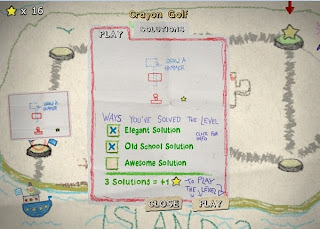 Crayon Golf
x 16
PLAY SOLUTIONS
DRAW A
HAMMER
DRAW A
HAMMER
WAYS YOU'VE SOLVED THE LEVEL
Elegant Solution
CLICK FOR
INFO
Old School Solution
Awesome Solution
3 Solutions = +1
TO PLAY
THE LEVEL
CLOSE PLAY
ISLAN